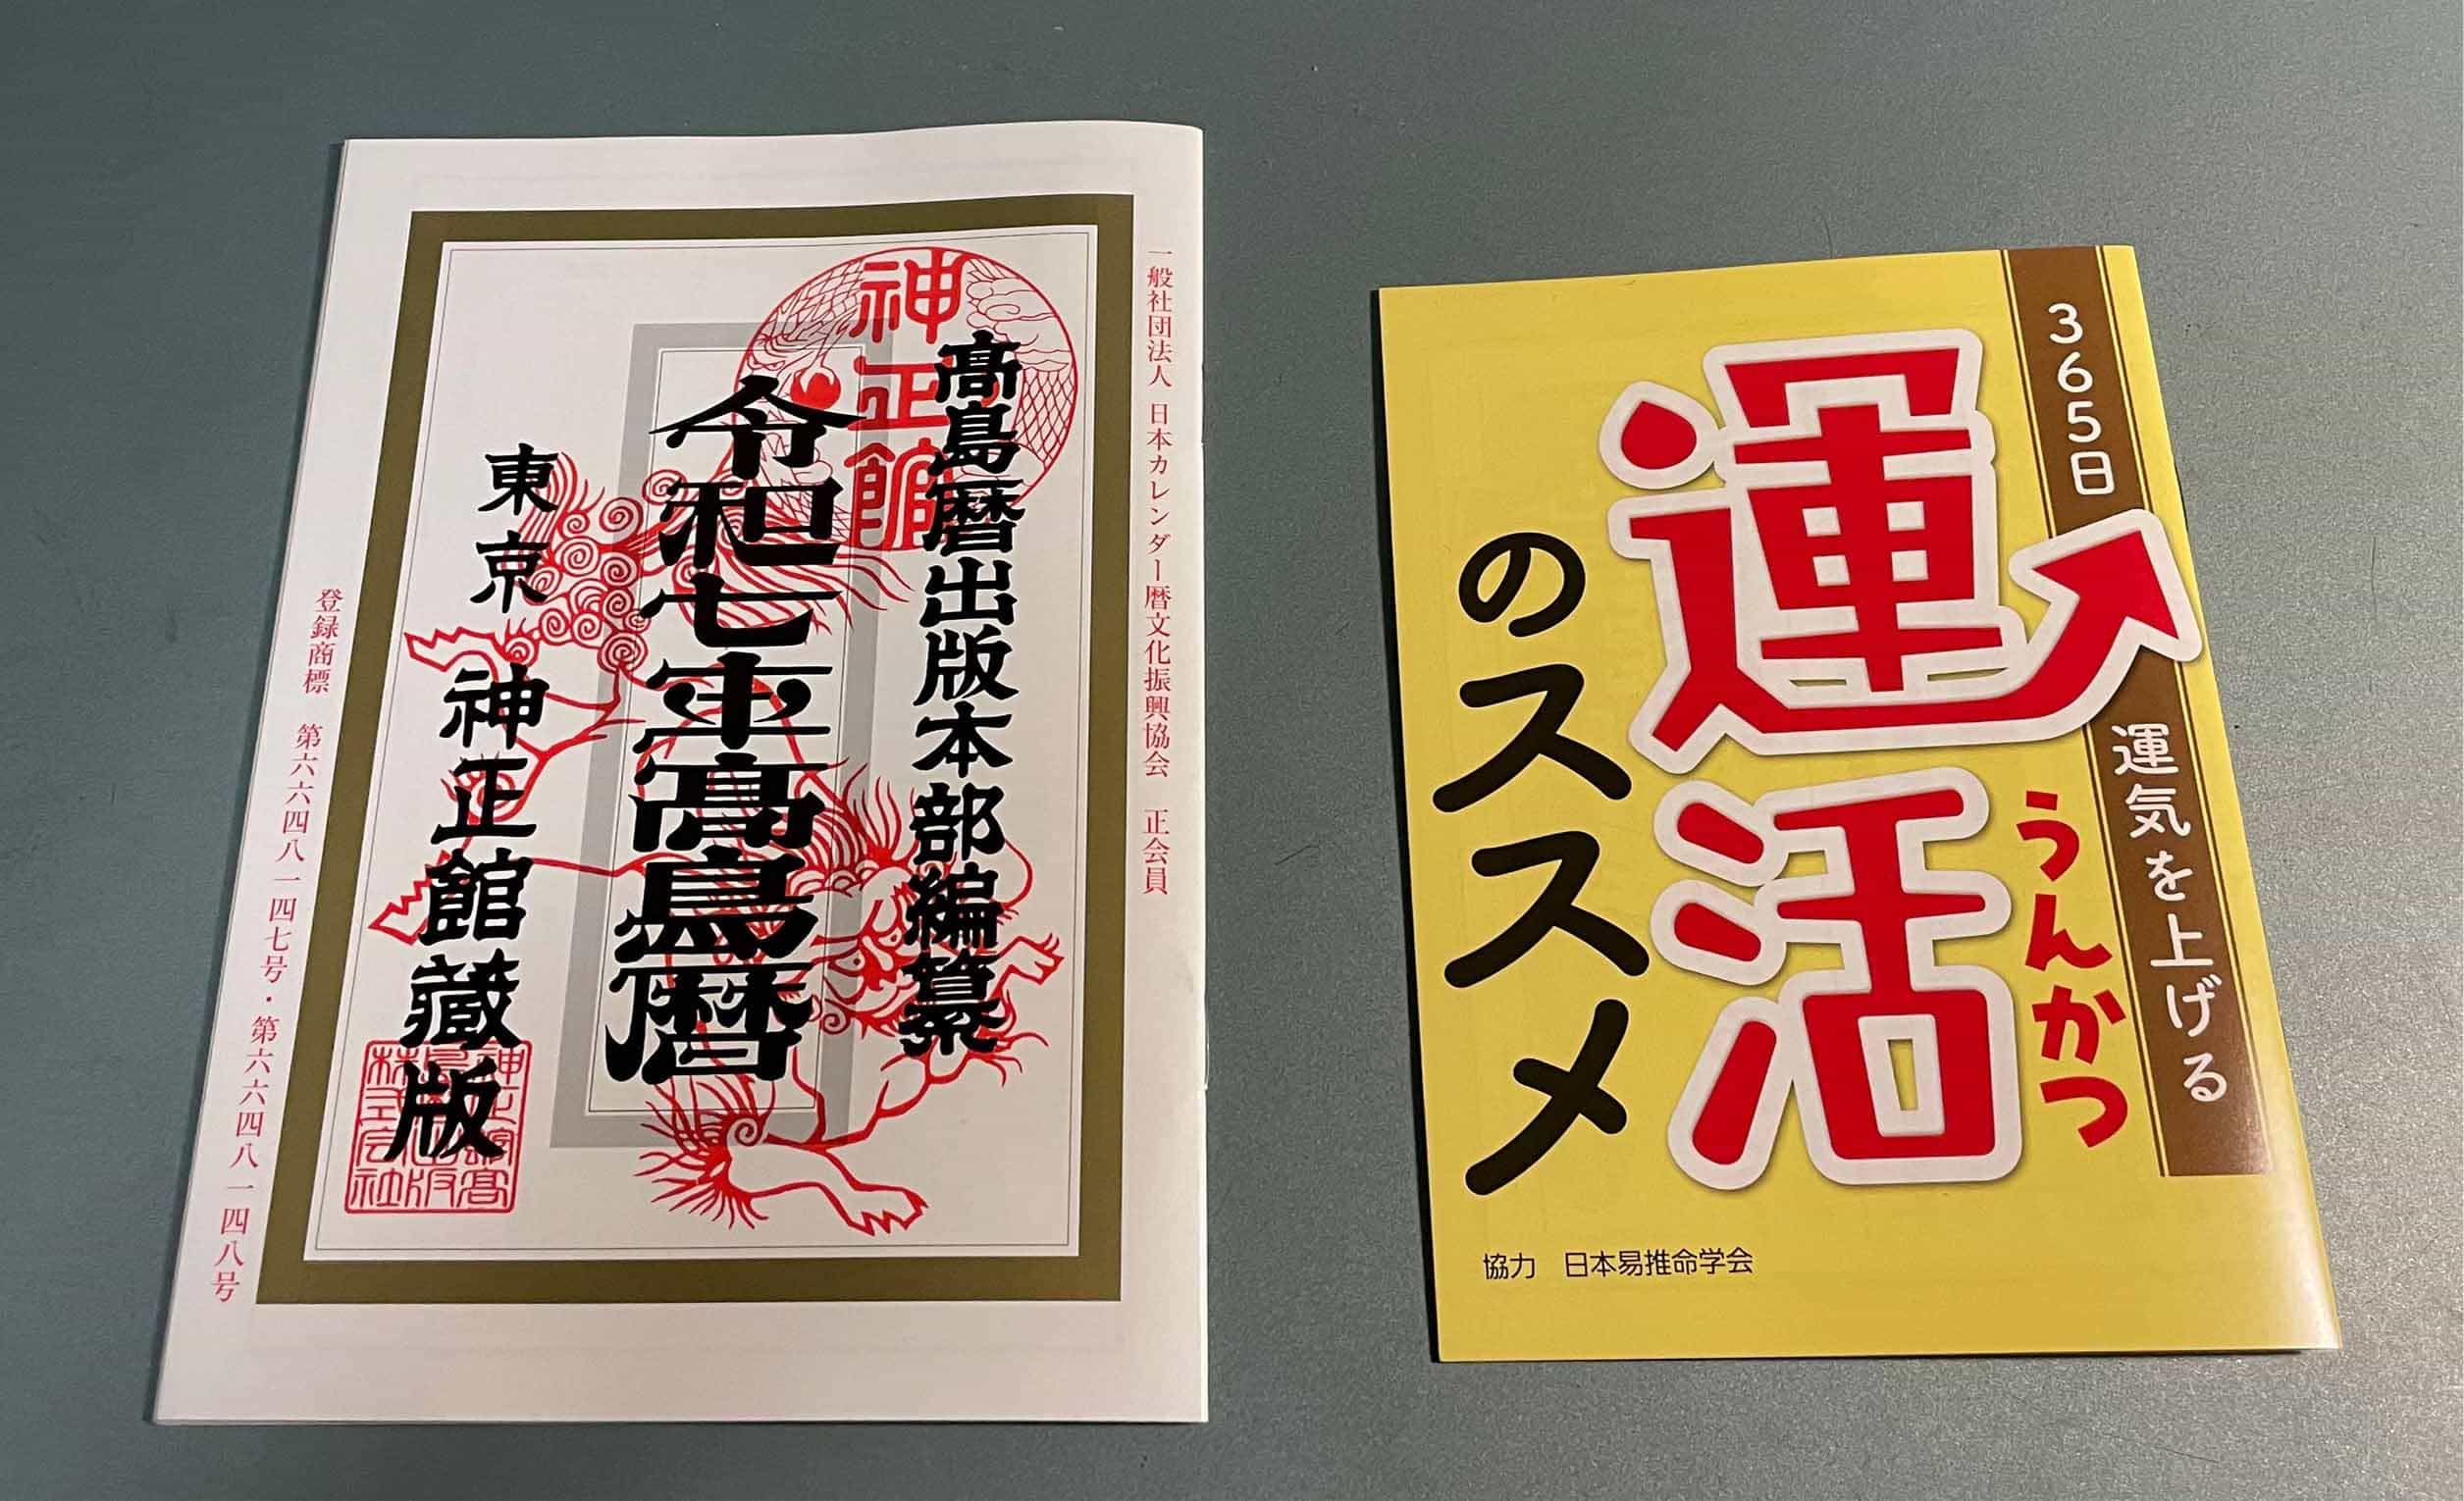 一般社団法人 日本カレンダー暦文化振興協会 正会員
神正館
高島暦出版本部編纂
令和七年高島暦
東京 神正館蔵版
登録商標 第六六四八一四七号・第六六四八一四八号
365日 運気を上げる
うんかつ
運活
のススメ
協力 日本易推命学会